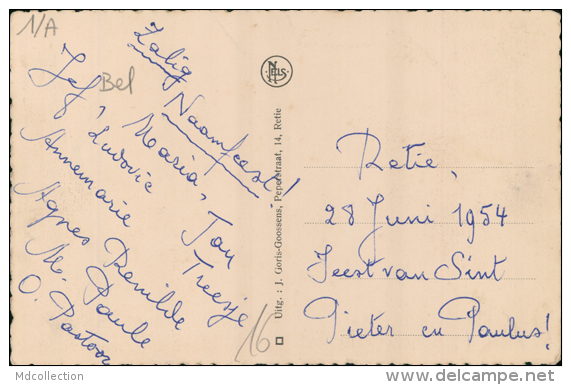 1/A
Bel
Zalig
Naamfeest!
Jef, Maria, Jan
Ludovic Treesje
Annemarie
Agnes Renilde
M. Paule
O. Pastoor
16
NELS
Uitg.: J. Goris-Goossens, Peperstraat, 14, Retie
Retie,
28 Juni 1954
Feest van Sint
Pieter en Paulus!
Mdcollection
delcampe.net